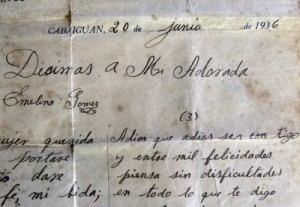 CABAIGUAN, 20 de junio de 1936
Decimas a Mi Adorada
Emelina Gomez
ujer querida
portare
dare
mi bida;
(3)
Adios que adios ser con tigo
y entre mil felicidades
piensa sin disficultades
en todo lo que te digo